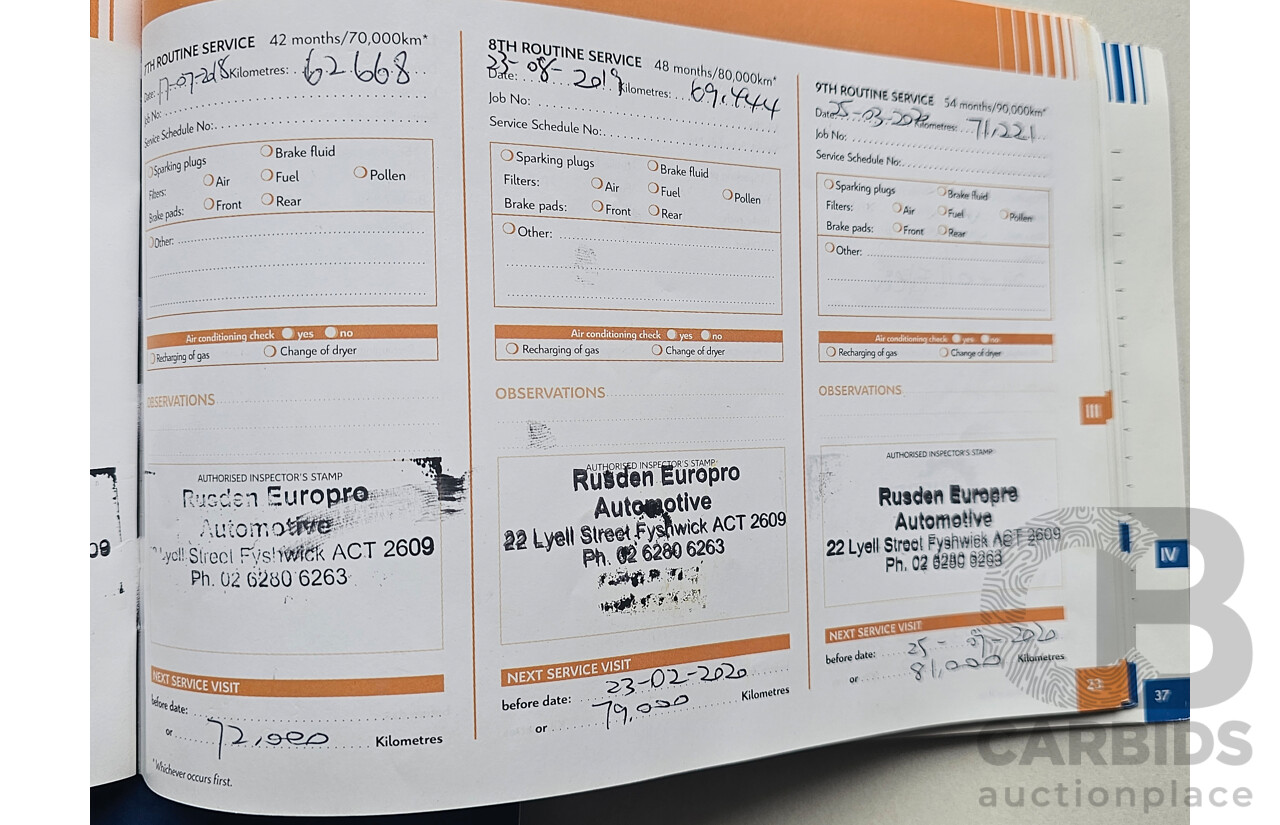 7TH ROUTINE SERVICE 42 months/70,000km*
Date: 17-07-2018 Kilometres: 62.668
Job No:
Service Schedule No:
Sparking plugs Brake fluid
Filters: Air Fuel Pollen
Brake pads: Front Rear
Other:
Air conditioning check yes no
Recharging of gas Change of dryer
OBSERVATIONS
AUTHORISED INSPECTOR'S STAMP
Rusden Europro
Automotive
Lyell Street Fyshwick ACT 2609
Ph. 02 6280 6263
NEXT SERVICE VISIT
before date:
or 72,000 Kilometres
*Whichever occurs first.
8TH ROUTINE SERVICE 48 months/80,000km*
Date: 23-08-2019 Kilometres: 69.444
Job No:
Service Schedule No:
Sparking plugs Brake fluid
Filters: Air Fuel Pollen
Brake pads: Front Rear
Other:
Air conditioning check yes no
Recharging of gas Change of dryer
OBSERVATIONS
AUTHORISED INSPECTOR'S STAMP
Rusden Europro
Automotive
22 Lyell Street Fyshwick ACT 2609
Ph. 02 6280 6263
NEXT SERVICE VISIT
before date: 23-02-2020
or 79,000 Kilometres
9TH ROUTINE SERVICE 54 months/90,000km*
Date: 25-03-2020 Kilometres: 71,221
Job No:
Service Schedule No:
Sparking plugs Brake fluid
Filters: Air Fuel Pollen
Brake pads: Front Rear
Other:
Air conditioning check yes no
Recharging of gas Change of dryer
OBSERVATIONS
AUTHORISED INSPECTOR'S STAMP
Rusden Europro
Automotive
22 Lyell Street Fyshwick ACT 2609
Ph. 02 6280 6263
NEXT SERVICE VISIT
before date: 25-07-2020
or 81,000 Kilometres
III
IV
23
37
09
CB
CARBIDS
auctionplace